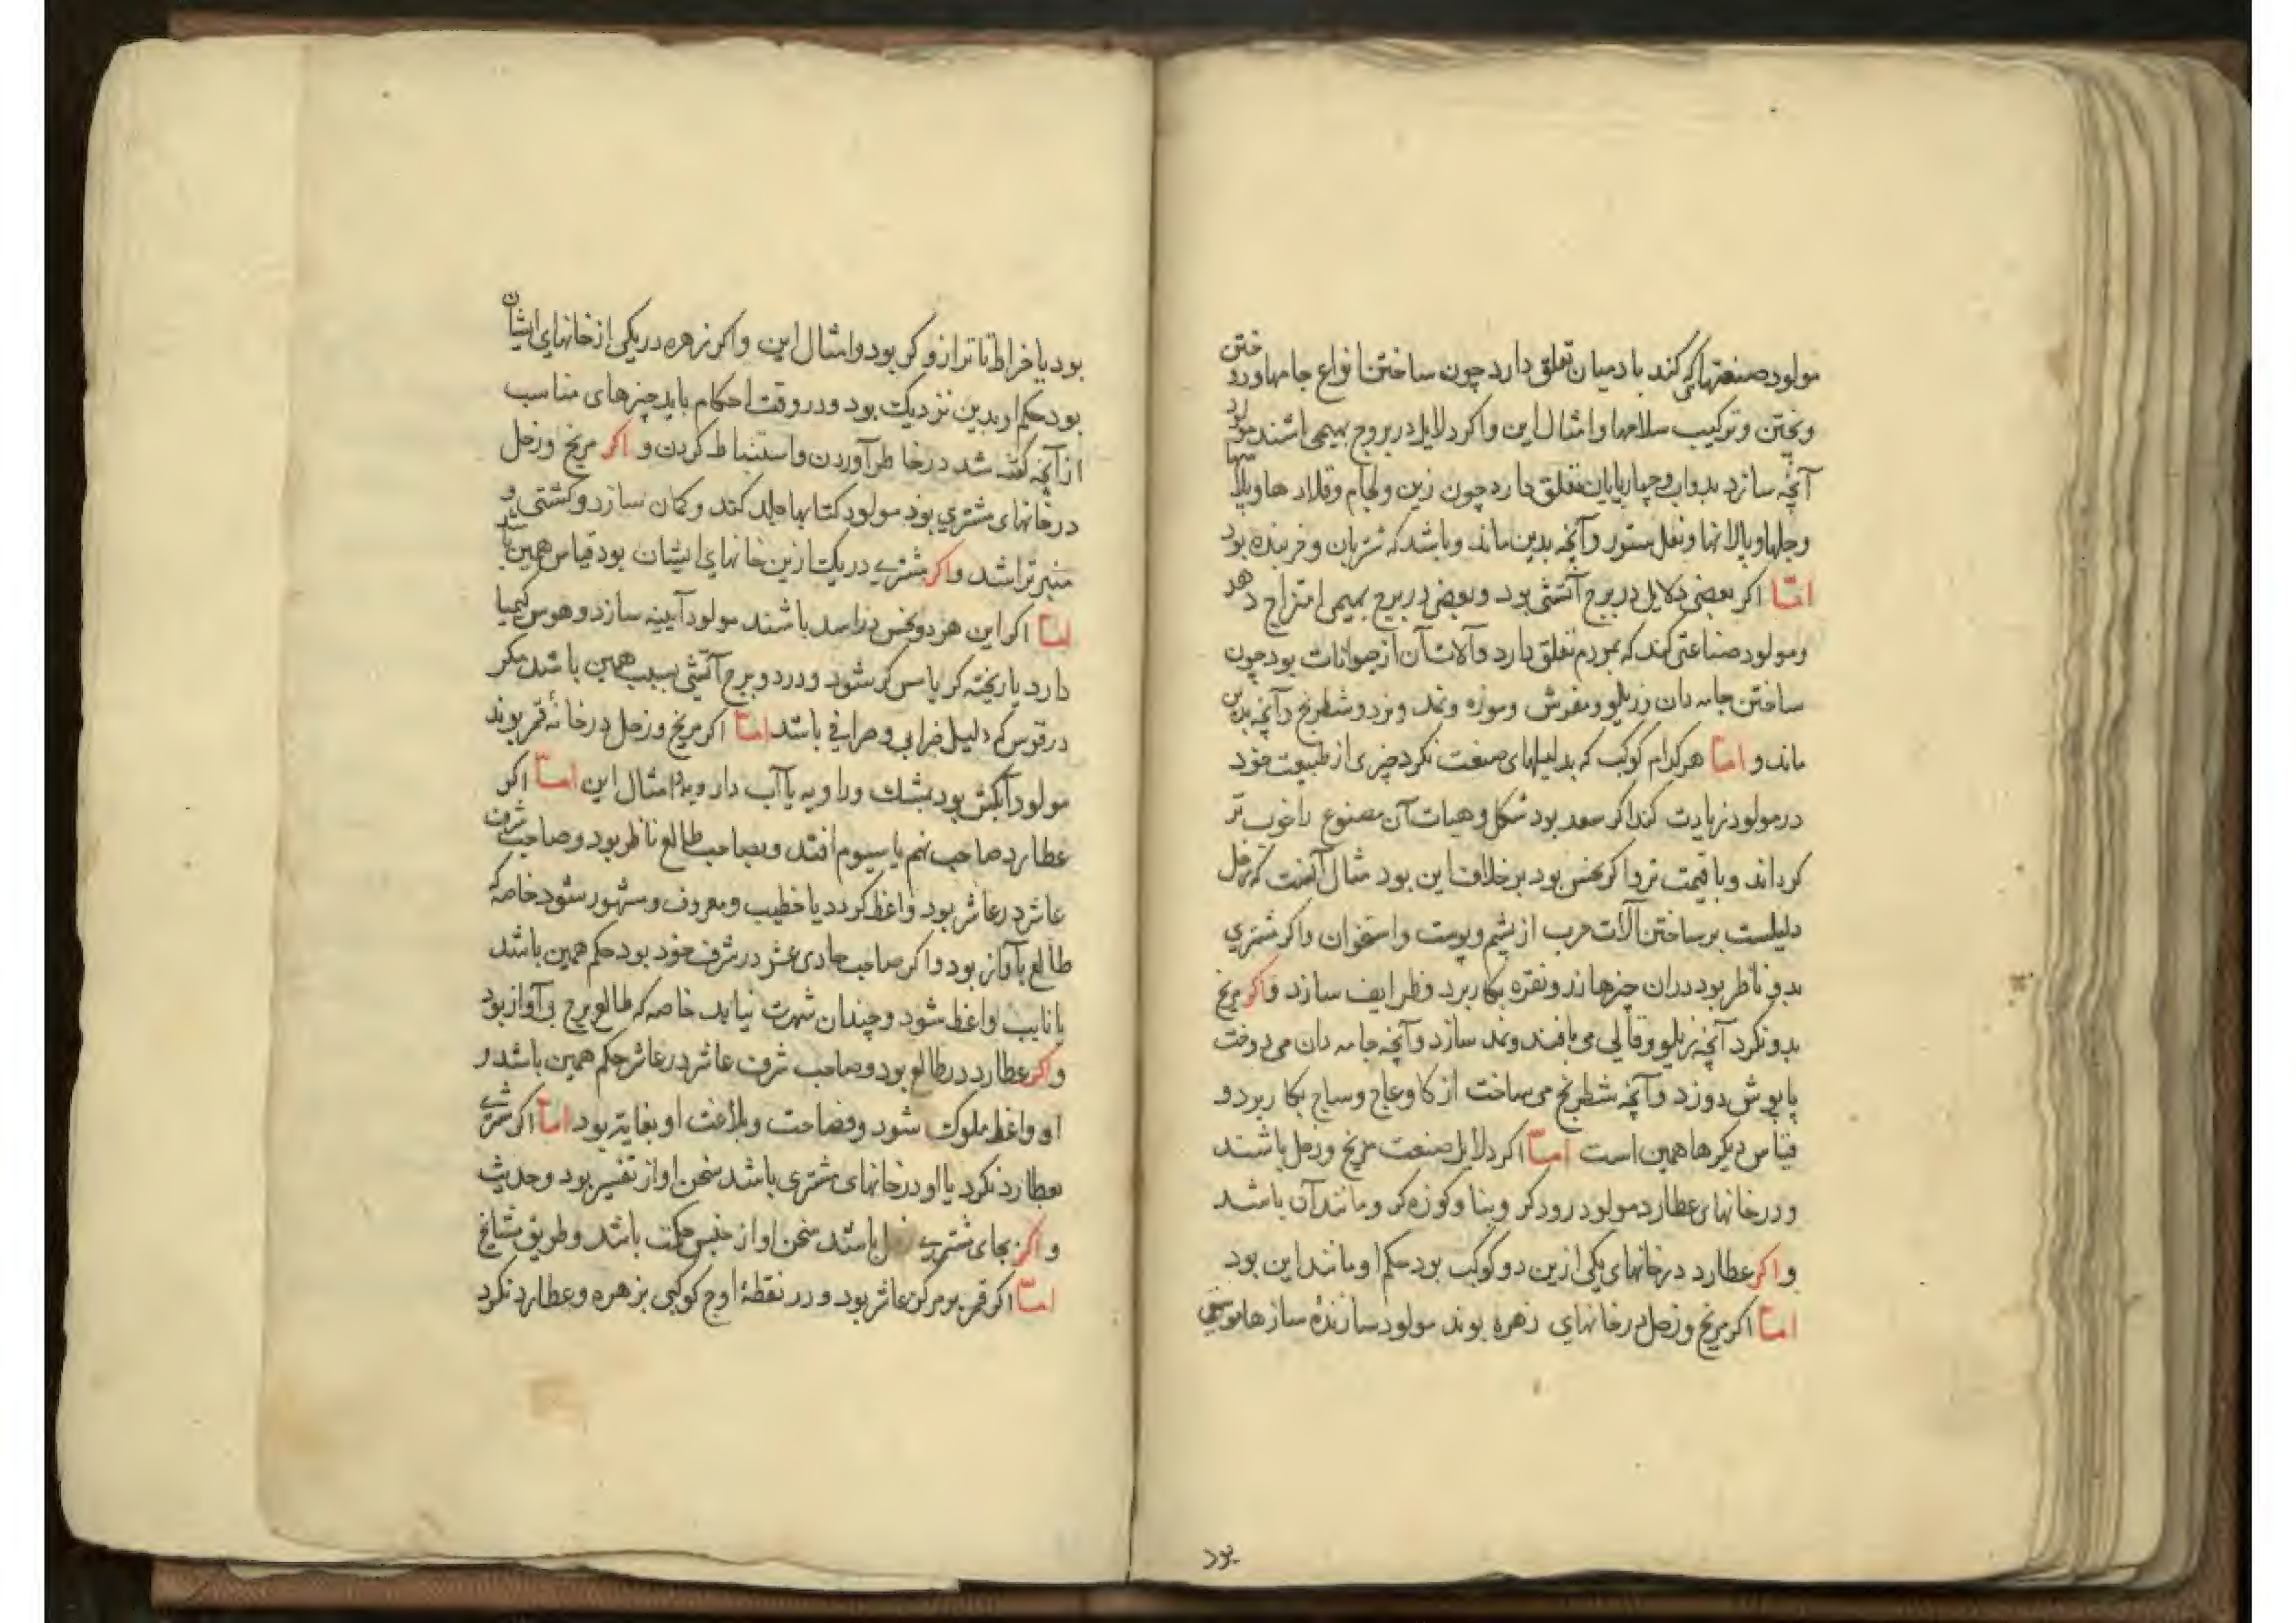 مولود صنعتهایی کند بآدمیان تعلق دارد چون ساختن انواع جامها ودوختن
وپختن وترکیب سلاحها وامثال این واکر دلایل در بروج بهیمی باشند مولود
آنچه سازد بدواب وچهارپایان تعلق دارد چون زین ولجام وقلادها وپلاسها
وجلها وپالانها ونعل ستور وآنچه بدین ماند وباشد که شتربان وخربنده بود
امّا اکر بعضی دلایل در برج آتشی بود وبعضی در برج بهیمی امتزاج دهد
ومولود صناعتی کند که بمردم تعلق دارد وآلات آن از حیوانات بود چون
ساختن جامه دان وزیلو ومفرش وموزه ونمد ونرد وشطرنج وآنچه بدین
ماند و امّا هر کدام کوکب که بدلیلهای صنعت نکرد چیزی از طبیعت خود
در مولود زیادت کند اکر سعد بود شکل وهیات آن مصنوع را خوب تر
کرداند وبا قیمت تر واکر نحس بود بر خلاف این بود مثال آنست که زحل
دلیلست بر ساختن آلات حرب از پشم وپوست واستخوان واکر مشتری
بدو ناظر بود دران چیزها زر ونقره بکار برد وظرایف سازد واکر مریخ
بدو نکرد آنچه زیلو وقالی می بافند ونمد سازد وآنچه جامه دان می دوخت
پاپوش دوزد وآنچه شطرنج می ساخت از کاو وعاج وساج بکار برد و
قیاس دیکرها همین است امّا اکر دلایل صنعت مریخ وزحل باشند
ودر خانهای عطارد مولود درودکر وبنا وکوزه کر ومانند آن باشد
واکر عطارد در خانهای یکی ازین دو کوکب بود حکم او مانند این بود
امّا اکر مریخ وزحل در خانهای زهره بوند مولود سازندۀ سازها
بود
بود یا خراط تا ترازوکر بود وامثال این واکر زهره در یکی از خانهای ایشان
بود حکم او بدین نزدیک بود ودر وقت احکام باید چیزهای مناسب
از آنچه کفته شد در خاطر آوردن واستنباط کردن و اکر مریخ وزحل
در خانهای مشتری بوند مولود کتابها جلد کند وکمان سازد وکشتی و
منبر تراشد واکر مشتری در یک ازین خانهای ایشان بود قیاس همین باشد
امّا اکر این هر دو نحس در اسد باشند مولود آیینه سازد وهوس کیمیا
دارد یا ریخته کر یا مس کر شود ودر دو برج آتشی سبب همین باشد مکر
در قوس که دلیل خرابی وصرافی باشد امّا اکر مریخ وزحل در خانۀ قمر بوند
مولود آبکش بود بمشک وراویه یا آب دار وبدامثال این امّا اکر
عطارد صاحب نهم یا سیوم افتد وبصاحب طالع ناظر بود وصاحب شرف
عاشر در عاشر بود واعظ کردد یا خطیب ومعروف ومشهور شود خاصه که
طالع باآواز بود واکر صاحب حادی عشر در شرف خود بود حکم همین باشد
یا نایب واعظ شود وچندان شهرت نیابد خاصه که طالع برج بی آواز بود
واکر عطارد در طالع بود وصاحب شرف عاشر در عاشر حکم همین باشد و
او واعظ ملوک شود وفصاحت وبلاغت او بغایت بود امّا اکر مشتری
بعطارد نکرد یا او در خانهای مشتری باشد سخن او از تفسیر بود وحدیث
و اکر بجای مشتری زحل باشد سخن او از جنس حکمت باشد وطریق مشایخ
امّا اکر قمر بر مرکز عاشر بود ودر نقطۀ اوج کوکبی بزهره وعطارد نکرد